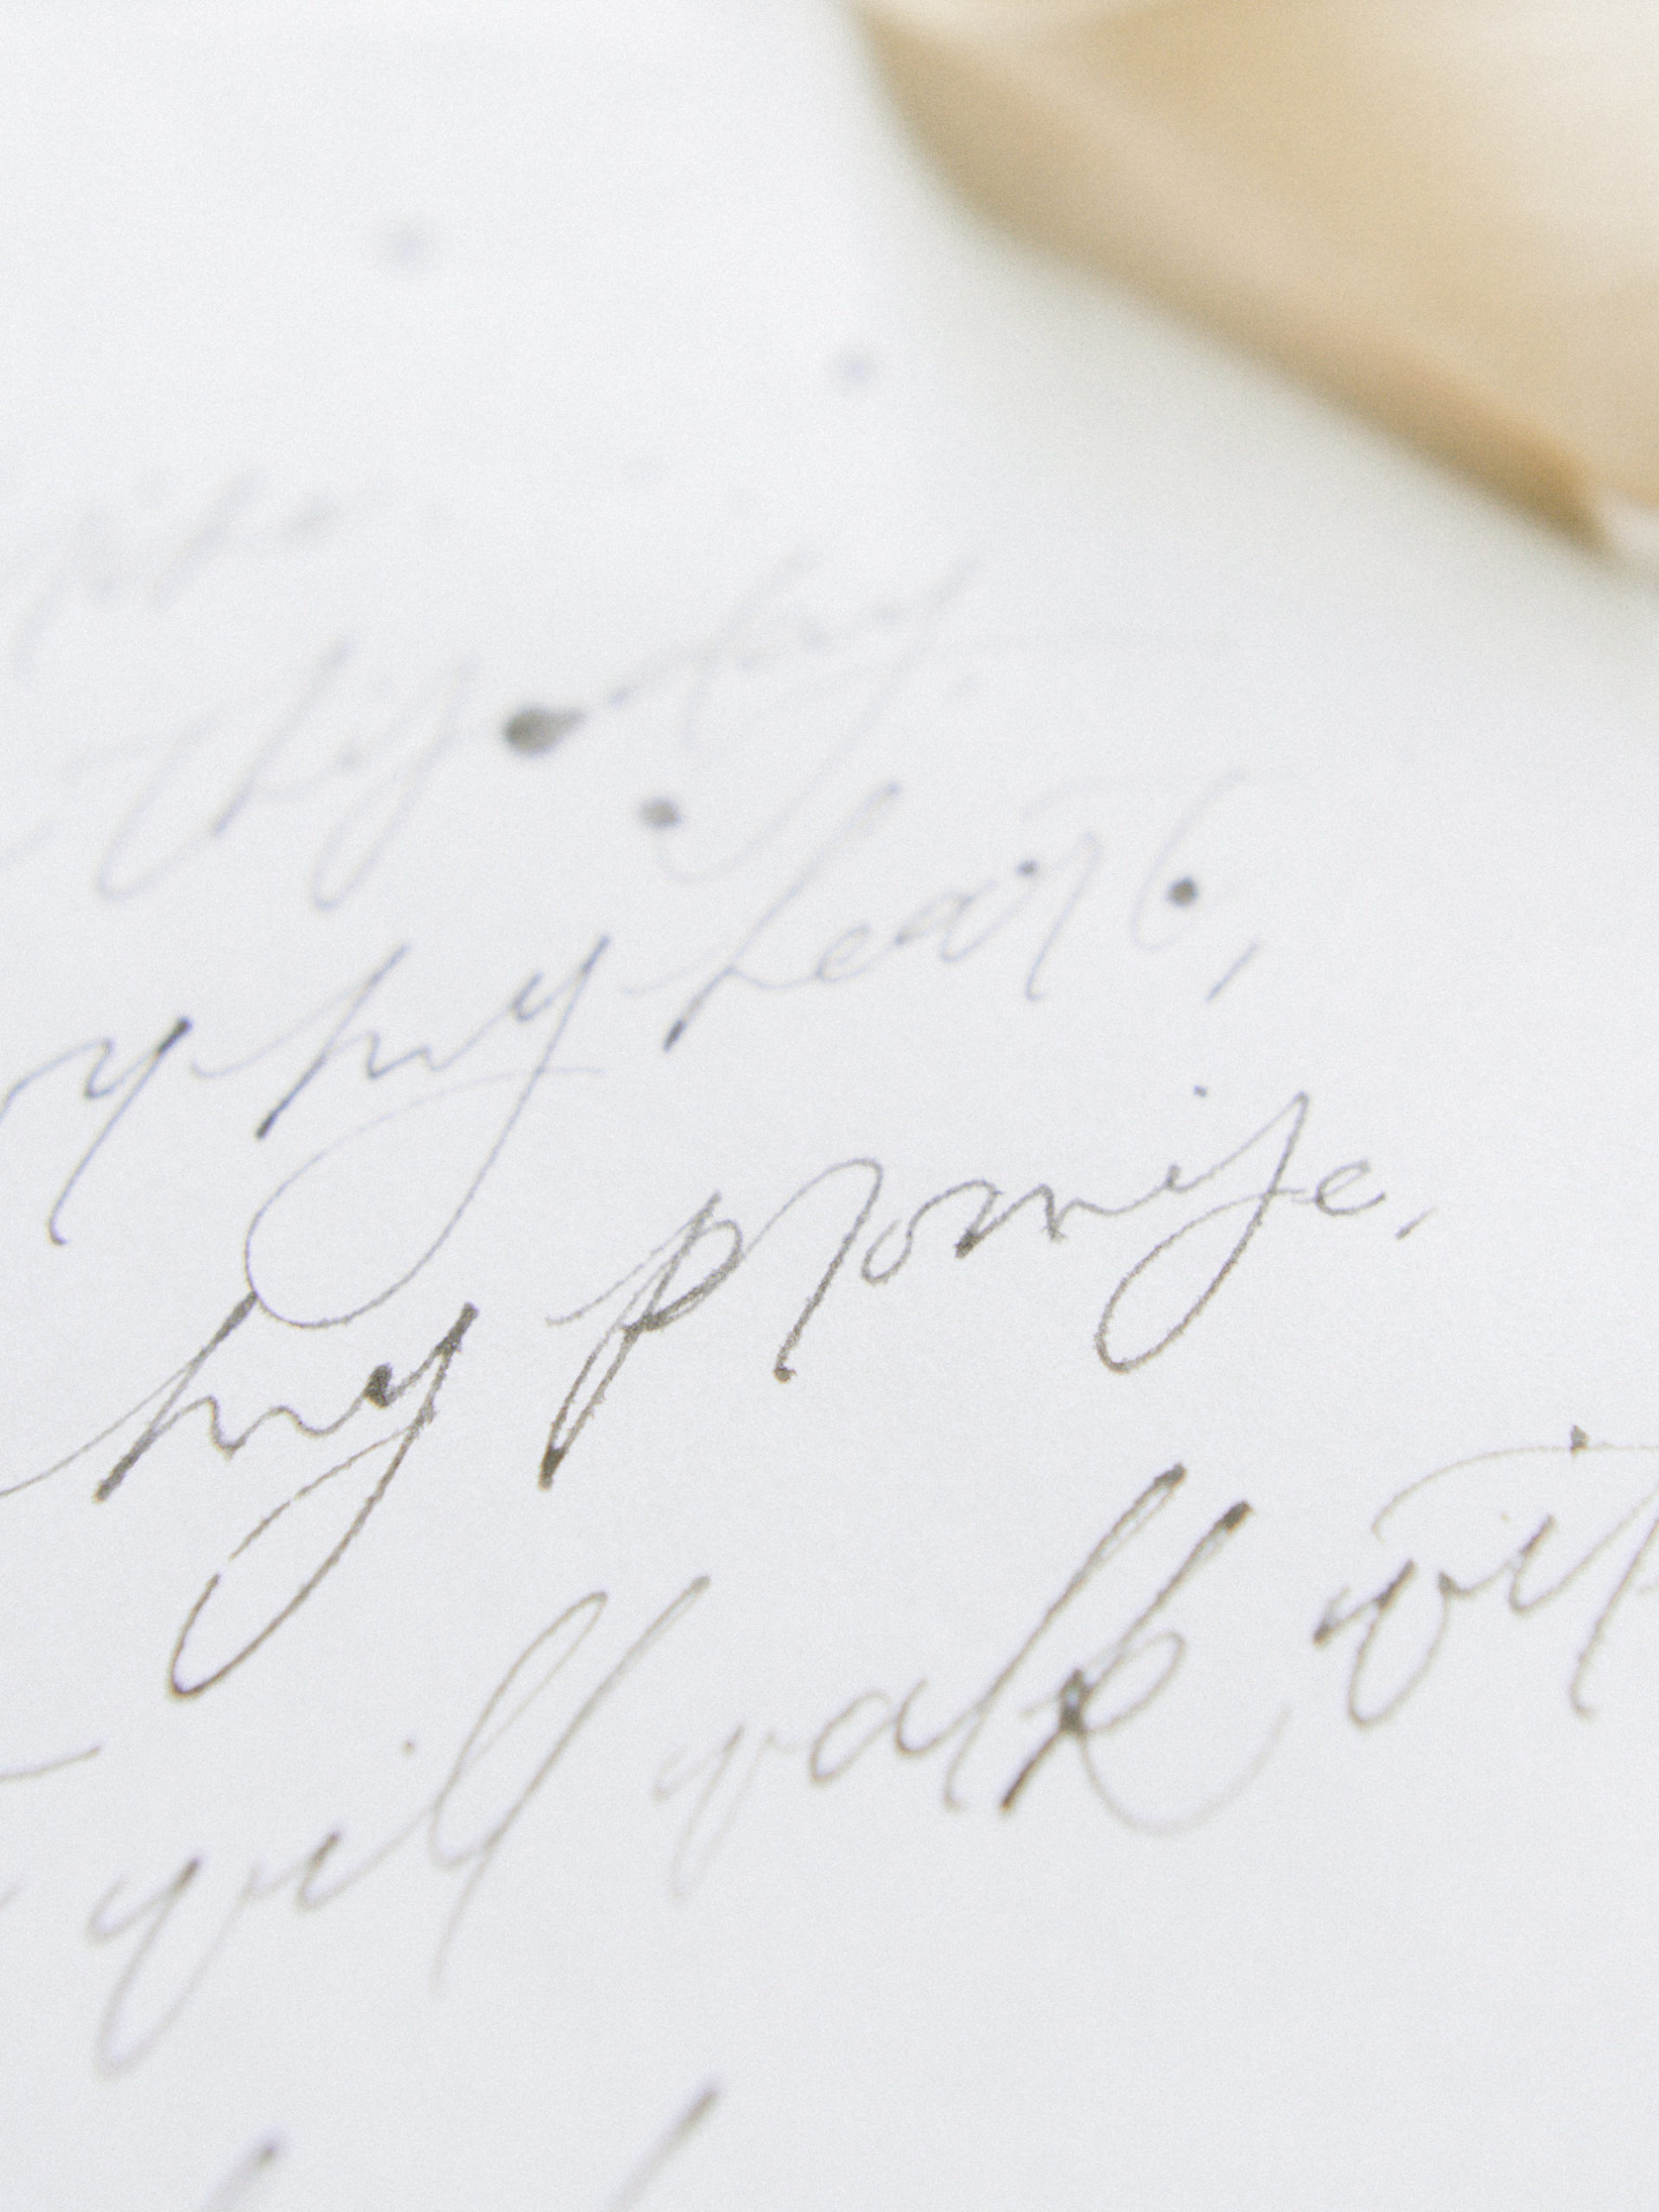 this day
my heart,
my promise,
will walk wit